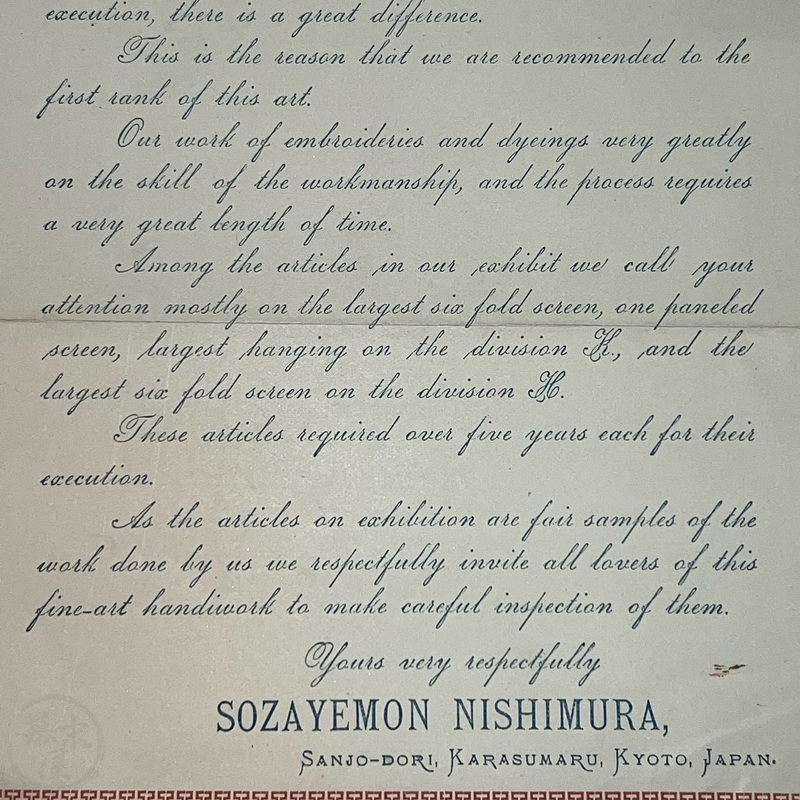 execution, there is a great difference.
This is the reason that we are recommended to the
first rank of this art.
Our work of embroideries and dyeings very greatly
on the skill of the workmanship, and the process requires
a very great length of time.
Among the articles in our exhibit we call your
attention mostly on the largest six fold screen, one paneled
screen, largest hanging on the division K., and the
largest six fold screen on the division H.
These articles required over five years each for their
execution.
As the articles on exhibition are fair samples of the
work done by us we respectfully invite all lovers of this
fine-art handiwork to make careful inspection of them.
Yours very respectfully
SOZAYEMON NISHIMURA,
SANJO-DORI, KARASUMARU, KYOTO, JAPAN.